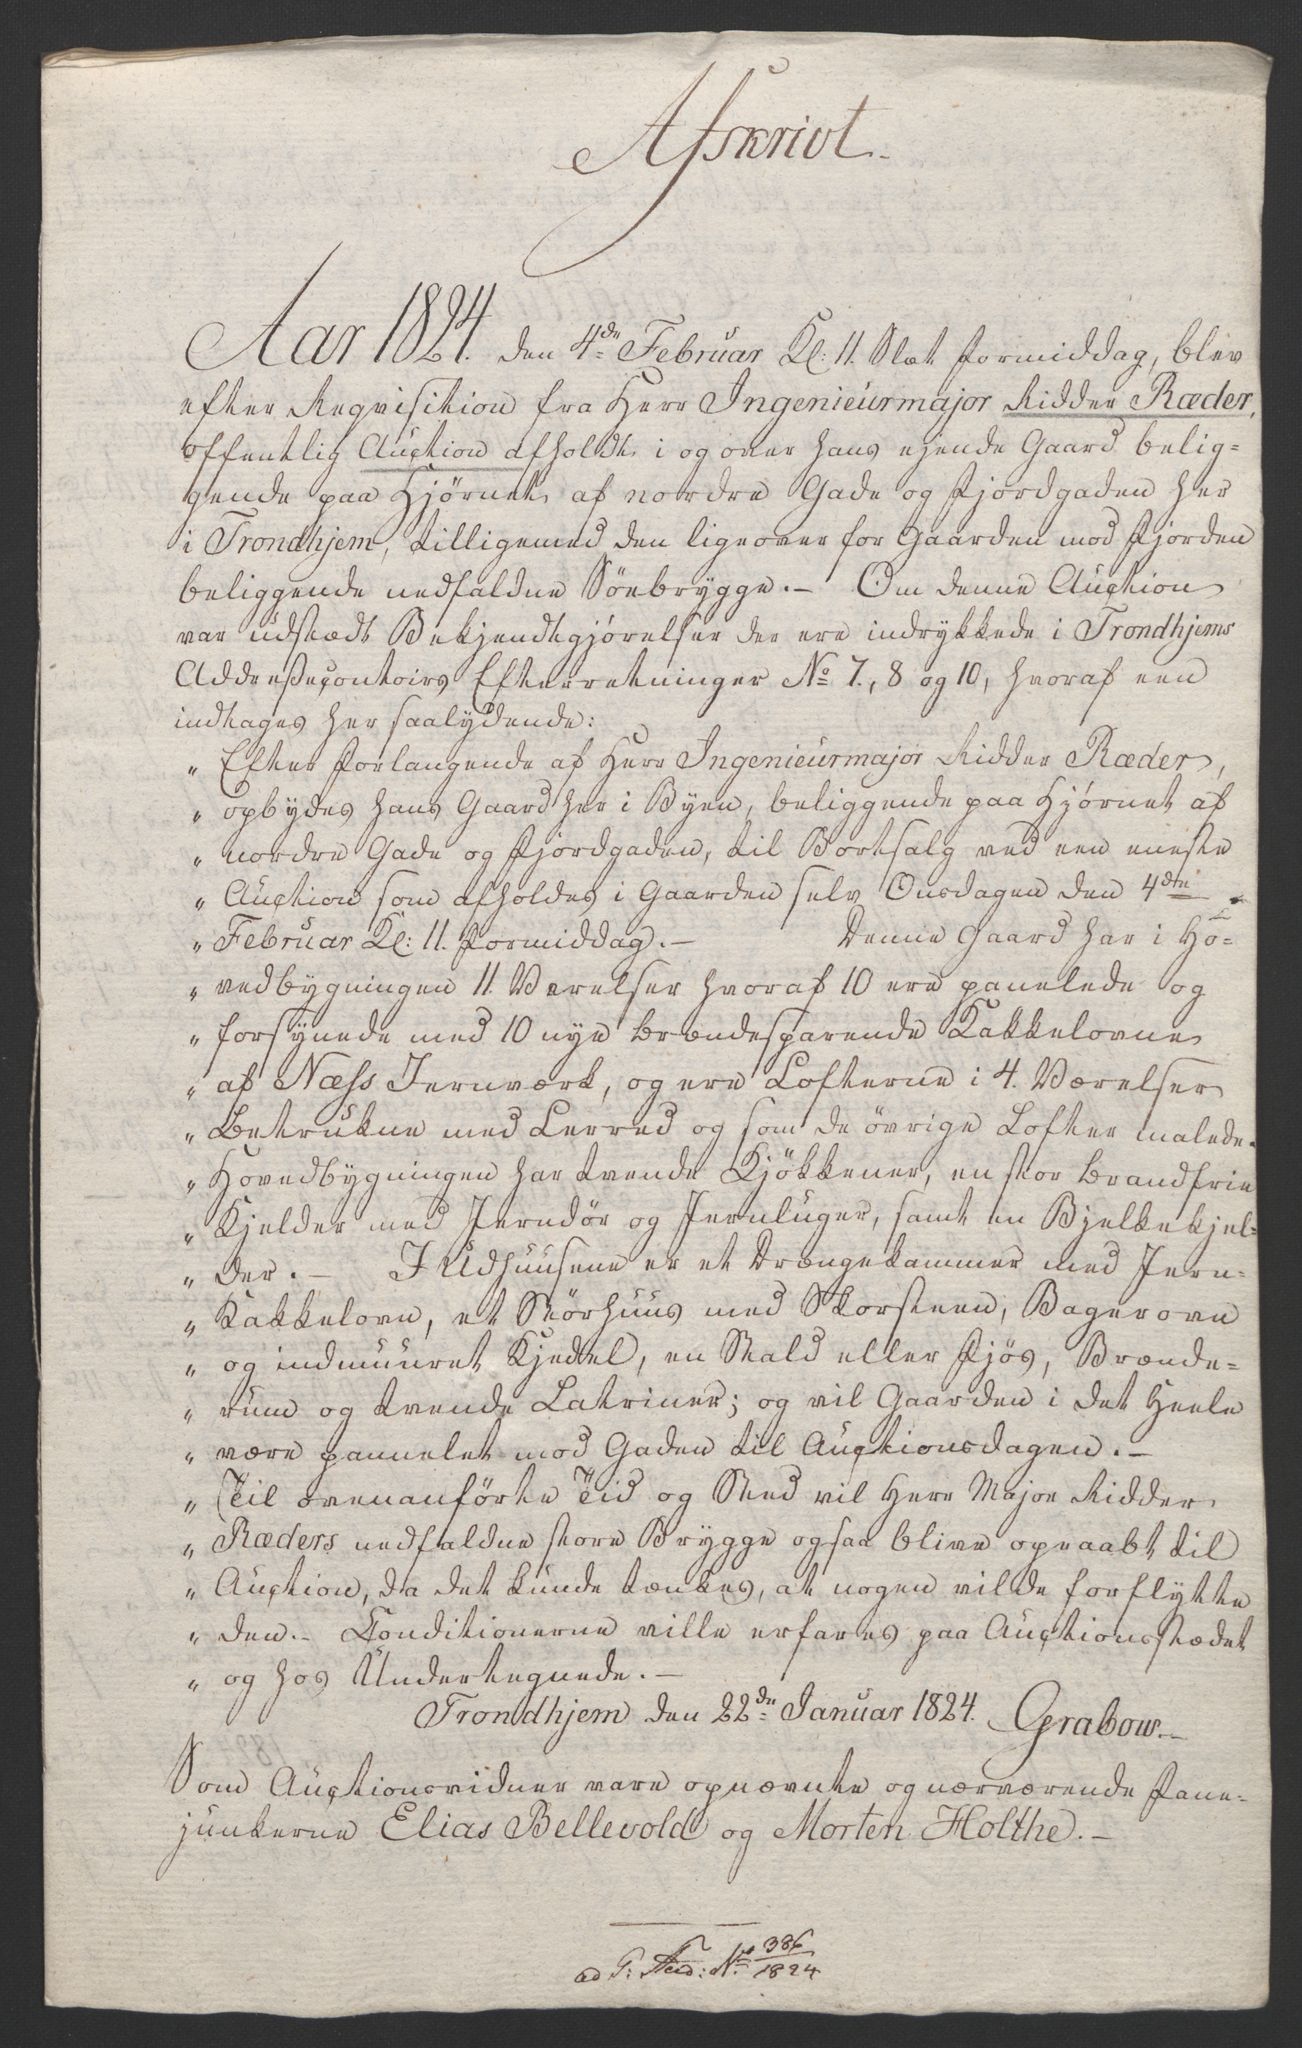 Afskrivt.
Aar 1824. den 4de Februar Kl: 11. Slæt Formiddag, blev
efter Reqvisition fra Herr Ingenieurmajor Ridder Ræder,
offentlig Auction afholdt i og over hans ejende Gaard belig-
gende paa Hjørnet af nordre Gade og Fjordgaden her
i Trondhjem, tilligemed den ligeover for Gaarden mod Fjorden
beliggende nedfaldne Söebrygge.- Om denne Auction
var udstædt Bekjendtgjørelser der ere indrykkede i Trondhjems
Addressecontoirs Efterretninger No 7., 8 og 10, hvoraf een
indtages her saalydende:
" Efter Forlangende af Herr Ingenieurmajor Ridder Ræder,
" opbydes hans Gaard her i Byen, beliggende paa Hjørnet af
" nordre Gade og Fjordgaden, til Bortsalg ved een eneste
" Auction som afholdes i Gaarden selv Onsdagen den 4dte
" Februar Kl: 11. Formiddag.- Denne Gaard har i Ho-
" vedbygningen 11. Værelser hvoraf 10 ere panelede og
" forsynede med 10 nye brændesparende Kakkelovne
" af Næss Jernværk, og ere Lofterne i 4. Værelser
" betrukne med Lerred og som de övrige Lofter malede.
" Hovedbygningen har tvende Kjökkener, en stor brandfrie
" Kjelder med Jerndör og Jernluger, samt en Bjelkekjel-
" der.- I Udhuusene er et Drængekammer med Jern-
" Kakkelovn, et Störhuus med Skorsteen, Bagerovn
" og indmuuret Kjedel, en Stald eller Fjös, Brænde-
" rum og tvende Latriner; og vil Gaarden i det Heele
" være pannelet mod Gaden til Auctionsdagen.-
" Til ovenanförte Tid og Sted vil Herr Major Ridder
" Ræders nedfaldne store Brygge ogsaa blive opraabt til
" Auction, da det kunde tænkes, at nogen vilde forflytte
" den.- Conditionerne ville erfares paa Auctionsstædet
" og hos Undertegnede.-
Trondhjem den 22de Januar 1824. Grabow.-
Som Auctionsvidner vare opnævnte og nærværende Fane-
junkerne Elias Bellevold og Morten Holthe.-
ad No 386
1824